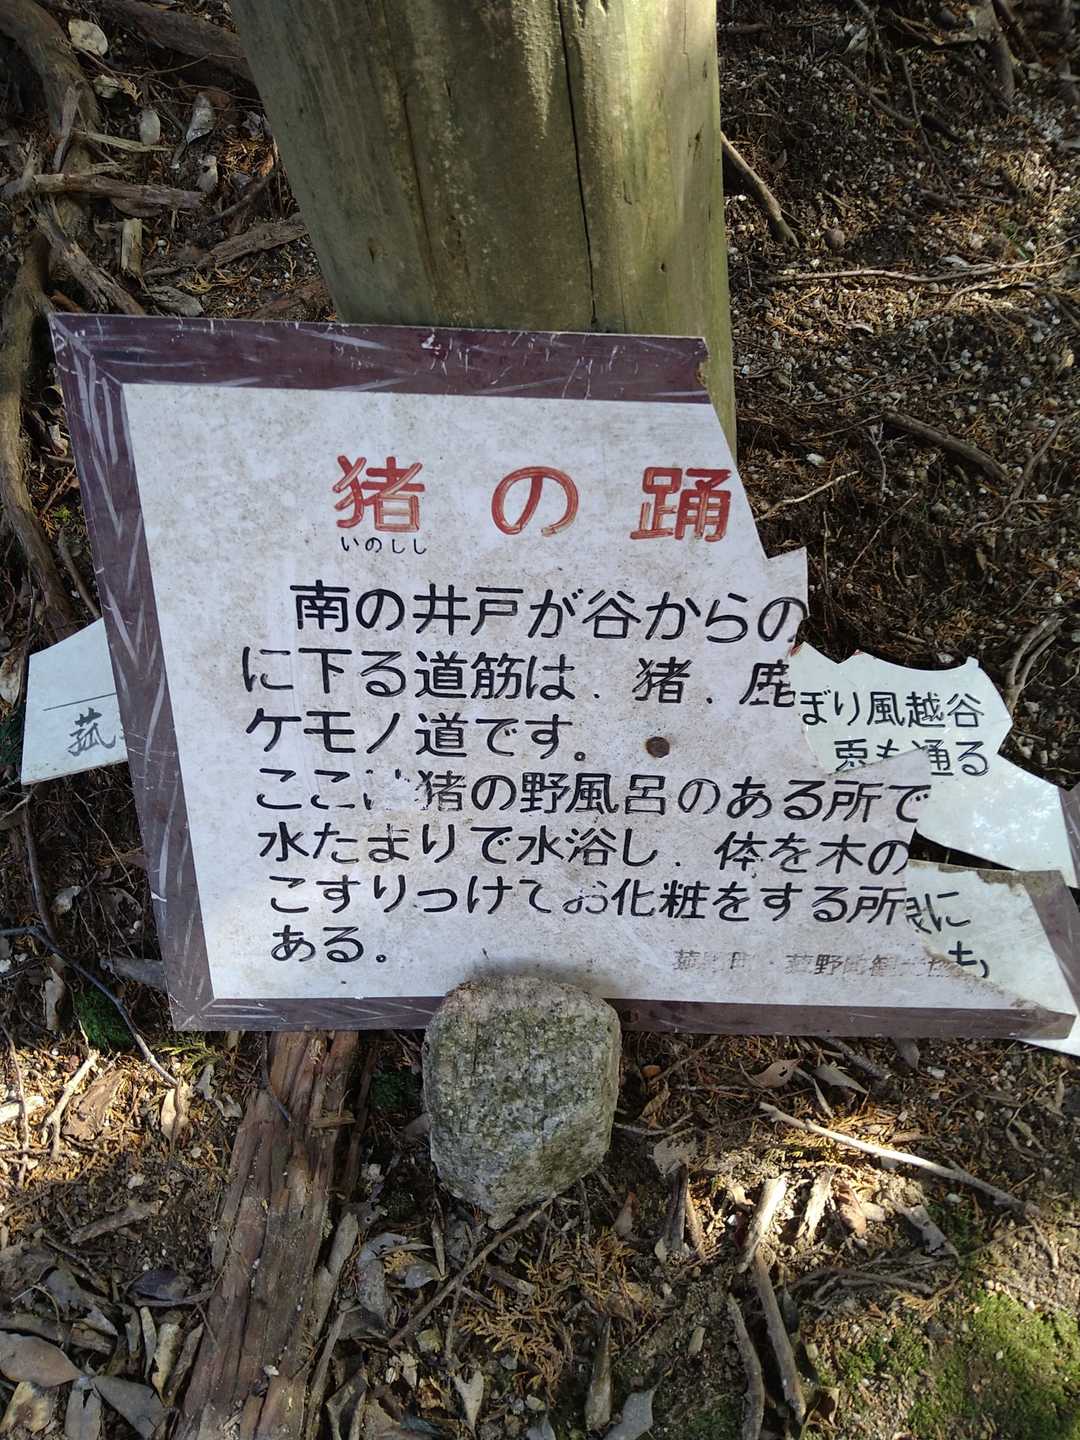 猪の踊
いのしし
南の井戸が谷からの
ぼり風越谷
に下る道筋は、猪、鹿
恵も通る
ケモノ道です。
ここは猪の野風呂のある所で
水たまりで水浴し、体を木の
こすりつけてお化粧をする所
に
ある。
菰野町・菰野町観光協
菰